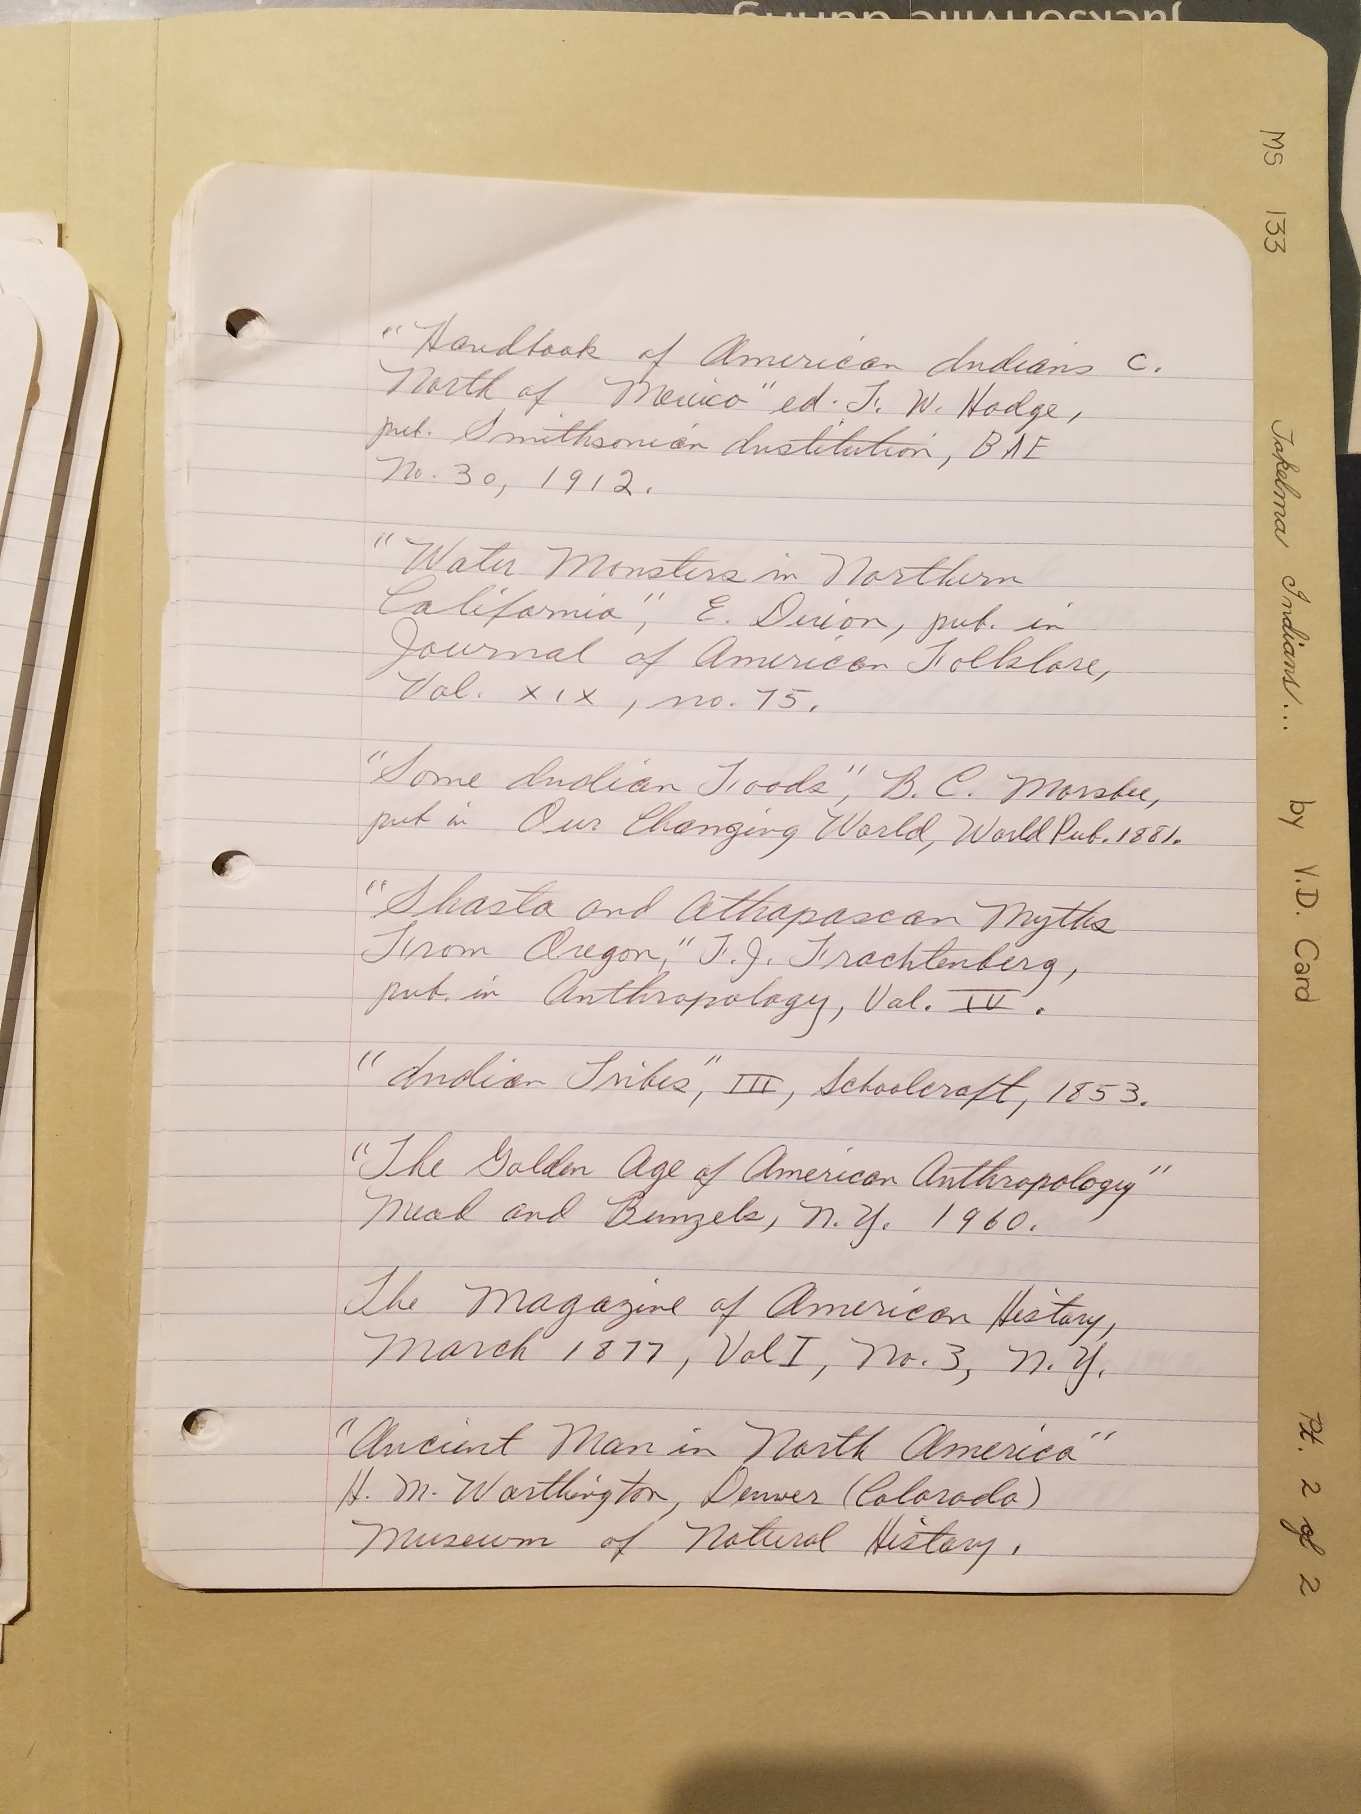 "Handbook of American Indians C.
North of Mexico" ed. F. W. Hodge,
pub. Smithsonian Institution, BAE
No. 30, 1912.
"Water Monsters in Northern
California", E. Dixon, pub. in
Journal of American Folklore,
Vol. XIX, no. 75.
"Some Indian Foods", B. C.
pub in Our Changing World, World Pub. 1881.
"Shasta and Athapascan Myths
From Oregon," F.J. Frachtenberg,
pub. in Anthropology, Vol. IV.
"Indian Tribes", III, Schoolcraft, 1853.
"The Golden Age of American Anthropology"
Mead and Bunzels, N.Y. 1960.
The Magazine of American History,
March 1877, Vol I, No. 3, N.Y.
"Ancient Man in North America"
H. M. Worthington, Denver (Colorado)
Museum of Natural History.
MS 133 Takelma Indians... by V.D. Card Pt. 2 of 2